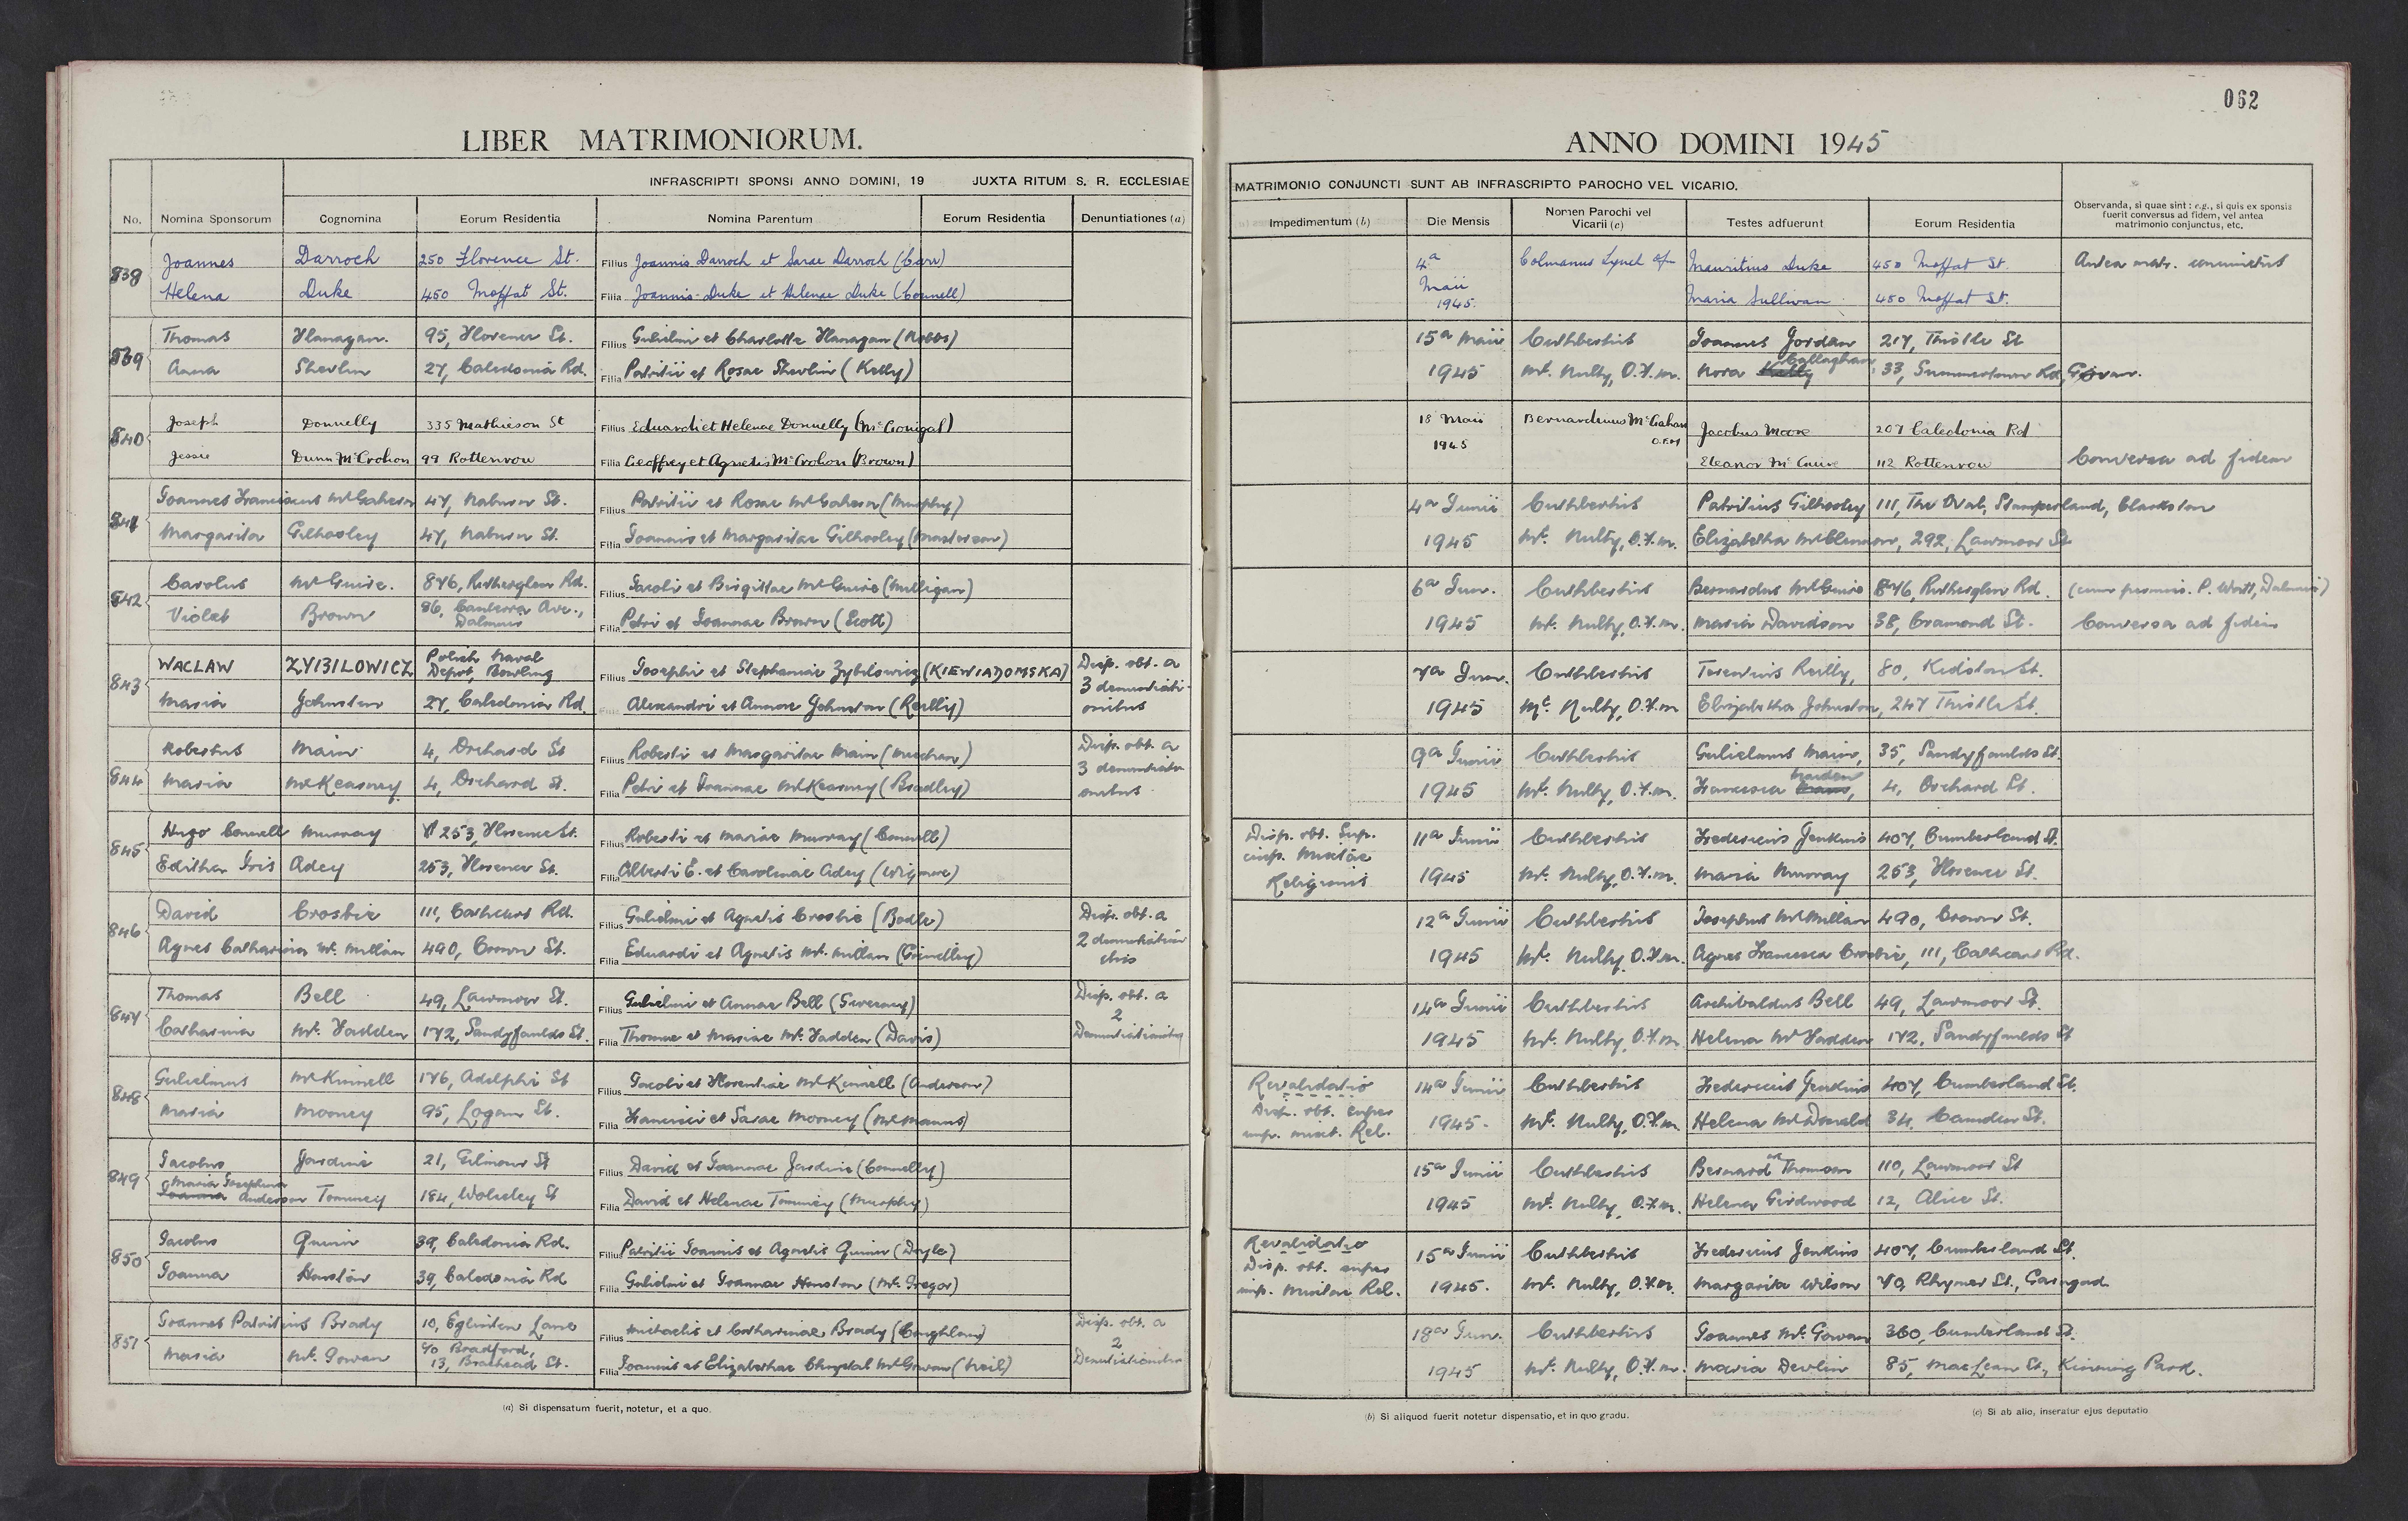 062
LIBER MATRIMONIORUM.
ANNO DOMINI 1945
INFRASCRIPTI SPONSI ANNO DOMINI, 19 JUXTA RITUM S. R. ECCLESIAE
MATRIMONIO CONJUNCTI SUNT AB INFRASCRIPTO PAROCHO VEL VICARIO.
No. Nomina Sponsorum Cognomina Eorum Residentia Nomina Parentum Eorum Residentia Denuntiationes (a)
Impedimentum (b) Die Mensis Nomen Parochi vel Vicarii (c) Testes adfuerunt Eorum Residentia
Observanda, si quae sint : e.g., si quis ex sponsis
fuerit conversus ad fidem, vel antea
matrimonio conjunctus, etc.
838 Joannes Darroch 250 Florence St. Filius Joannis Darroch et Sarae Darroch (Carr) 4a Maii 1945. Colmanus Lynch ofm Mauritius Duke 450 Moffat St. Antea matr.
Helena Duke 450 Moffat St. Filia Joannis Duke et Helenae Duke (Connell) Maria Sullivan 450 Moffat St.
839 Thomas Flanagan. 95, Florence St. Filius Gulielmi et Charlotte Flanagan (Hobbs) 15a Maii Cuthbertus Joannes Jordan 217, Thistle St
Anna Shevlin 27, Caledonia Rd. Filia Patritii et Rosae Shevlin (Kelly) 1945 Mc. Nulty, O.F.M. Nora Callaghan, 33, Summertown Rd, Govan.
840 Joseph Donnelly 335 Mathieson St Filius Eduardi et Helenae Donnelly (McGonigal) 18 Maii 1945 Bernardinus McGahan O.F.M Jacobus Moore 207 Caledonia Rd
Jessie Dunn McCrohon 99 Rottenrow Filia Geoffrey et Agnetis McCrohon (Brown) Eleanor McGuire 112 Rottenrow Conversa ad fidem
841 Joannes Franciscus McGahern 47, Naburn St. Filius Patritii et Rosae McGahern (Murphy) 4a Junii Cuthbertus Patritius Gilhooley 111, The Oval, Stamperland, Clarkston
Margarita Gilhooley 47, Naburn St. Filia Joannis et Margaritae Gilhooley (Masterson) 1945 Mc. Nulty, O.F.M. Elizabetha, 292, Lawmoor St
842 Carolus McGuire. 876, Rutherglen Rd. Filius Jacobi et Birgittae McGuire (Milligan) 6a Jun. Cuthbertus Bernardus McGuire 876, Rutherglen Rd. (cum permiss. P. Watt, Dalmuir)
Violet Brown 86, Canberra Ave., Dalmuir Filia Petri et Joannae Brown (Scott) 1945 Mc. Nulty, O.F.M. Maria Davidson 38, Cramond St. Conversa ad fidem
843 WACLAW ZYBILOWICZ Polish Naval Depot, Bowling Filius Josephi et Stephaniae Zybilowicz (KIEWIADOMSKA) Disp. obt. a 3 denuntiationibus 7a Jun. Cuthbertus Terentius Reilly, 80, Kidston St.
Maria Johnston 27, Caledonia Rd. Filia Alexandri et Annae Johnston (Reilly) 1945 Mc. Nulty, O.F.M Elizabetha Johnston, 247 Thistle St.
844 Robertus Main 4, Orchard St Filius Roberti et Margaritae Main (Meechan) Disp. obt. a 3 denuntiationibus 9a Junii Cuthbertus Gulielmus Main, 35, Sandyfaulds St.
Maria McKearney 4, Orchard St. Filia Petri et Joannae McKearney (Bradley) 1945 Mc. Nulty, O.F.M. Francisca, 4, Orchard St.
845 Hugo Connell Murray 253, Florence St. Filius Roberti et Mariae Murray (Connell) Disp. obt. sup. imp. Mixtae Religionis 11a Junii Cuthbertus Fredericus Jenkins 407, Cumberland St.
Editha Iris Adey 253, Florence St. Filia Alberti E. et Carolinae Adey (Wigmore) 1945 Mc. Nulty, O.F.M. Maria Murray 253, Florence St.
846 David Crosbie 111, Cathcart Rd. Filius Gulielmi et Agnetis Crosbie (Bodle) Disp. obt. a 2 denuntiationibus 12a Junii Cuthbertus Josephus McMillan 490, Crown St.
Agnes Catharina Mc. Millan 490, Crown St. Filia Eduardi et Agnetis Mc. Millan (Grinelley) 1945 Mc. Nulty, O.F.M. Agnes Francisca Crosbie, 111, Cathcart Rd.
847 Thomas Bell 49, Lawmoor St. Filius Gulielmi et Annae Bell (Sweeney) Disp. obt. a 2 Denuntiationibus 14a Junii Cuthbertus Archibaldus Bell 49, Lawmoor St.
Catharina Mc. Fadden 172, Sandyfaulds St. Filia Thomae et Mariae Mc. Fadden (Davis) 1945 Mc. Nulty, O.F.M. Helena McFadden 172, Sandyfaulds St
848 Gulielmus McKinnell 176, Adelphi St Filius Jacobi et Florentiae McKinnell (Anderson) Revalidatio Disp. obt. super imp. mixt. Rel. 14a Junii Cuthbertus Fredericus Jenkins 407, Cumberland St.
Maria Mooney 95, Logan St. Filia Francisci et Sarae Mooney (McManus) 1945. Mc. Nulty, O.F.M. Helena McDonald 34, Camden St.
849 Jacobus Jardine 21, Gilmour St Filius David et Joannae Jardine (Connelly) 15a Junii Cuthbertus Bernard Thomson 110, Lawmoor St
Maria Josephina Anderson Tommey 184, Wolseley St Filia David et Helenae Tommey (Murphy) 1945 Mc. Nulty, O.F.M. Helena Girdwood 12, Alice St.
850 Jacobus Quinn 39, Caledonia Rd. Filius Patritii Joannis et Agnetis Quinn (Doyle) Revalidatio Disp. obt. super imp. Mixtae Rel. 15a Junii Cuthbertus Fredericus Jenkins 407, Cumberland St.
Joanna Houston 39, Caledonia Rd Filia Gulielmi et Joannae Houston (Mc. Gregor) 1945. Mc. Nulty, O.F.M. Margarita Wilson 70, Rhymer St., Garngad
851 Joannes Patritius Brady 10, Eglinton Lane Filius Michaelis et Catharinae Brady (Coughlan) Disp. obt. a 2 Denuntiationibus 18a Jun. Cuthbertus Joannes Mc. Gowan 360, Cumberland St.
Maria Mc. Gowan c/o Bradford, 13, Braehead St. Filia Joannis et Elizabethae Chrystal McGowan (Neil) 1945 Mc. Nulty, O.F.M. Maria Devlin 85, MacLean St., Kinning Park.
(a) Si dispensatum fuerit, notetur, et a quo.
(b) Si aliquod fuerit notetur dispensatio, et in quo gradu.
(c) Si ab alio, inseratur ejus deputatio